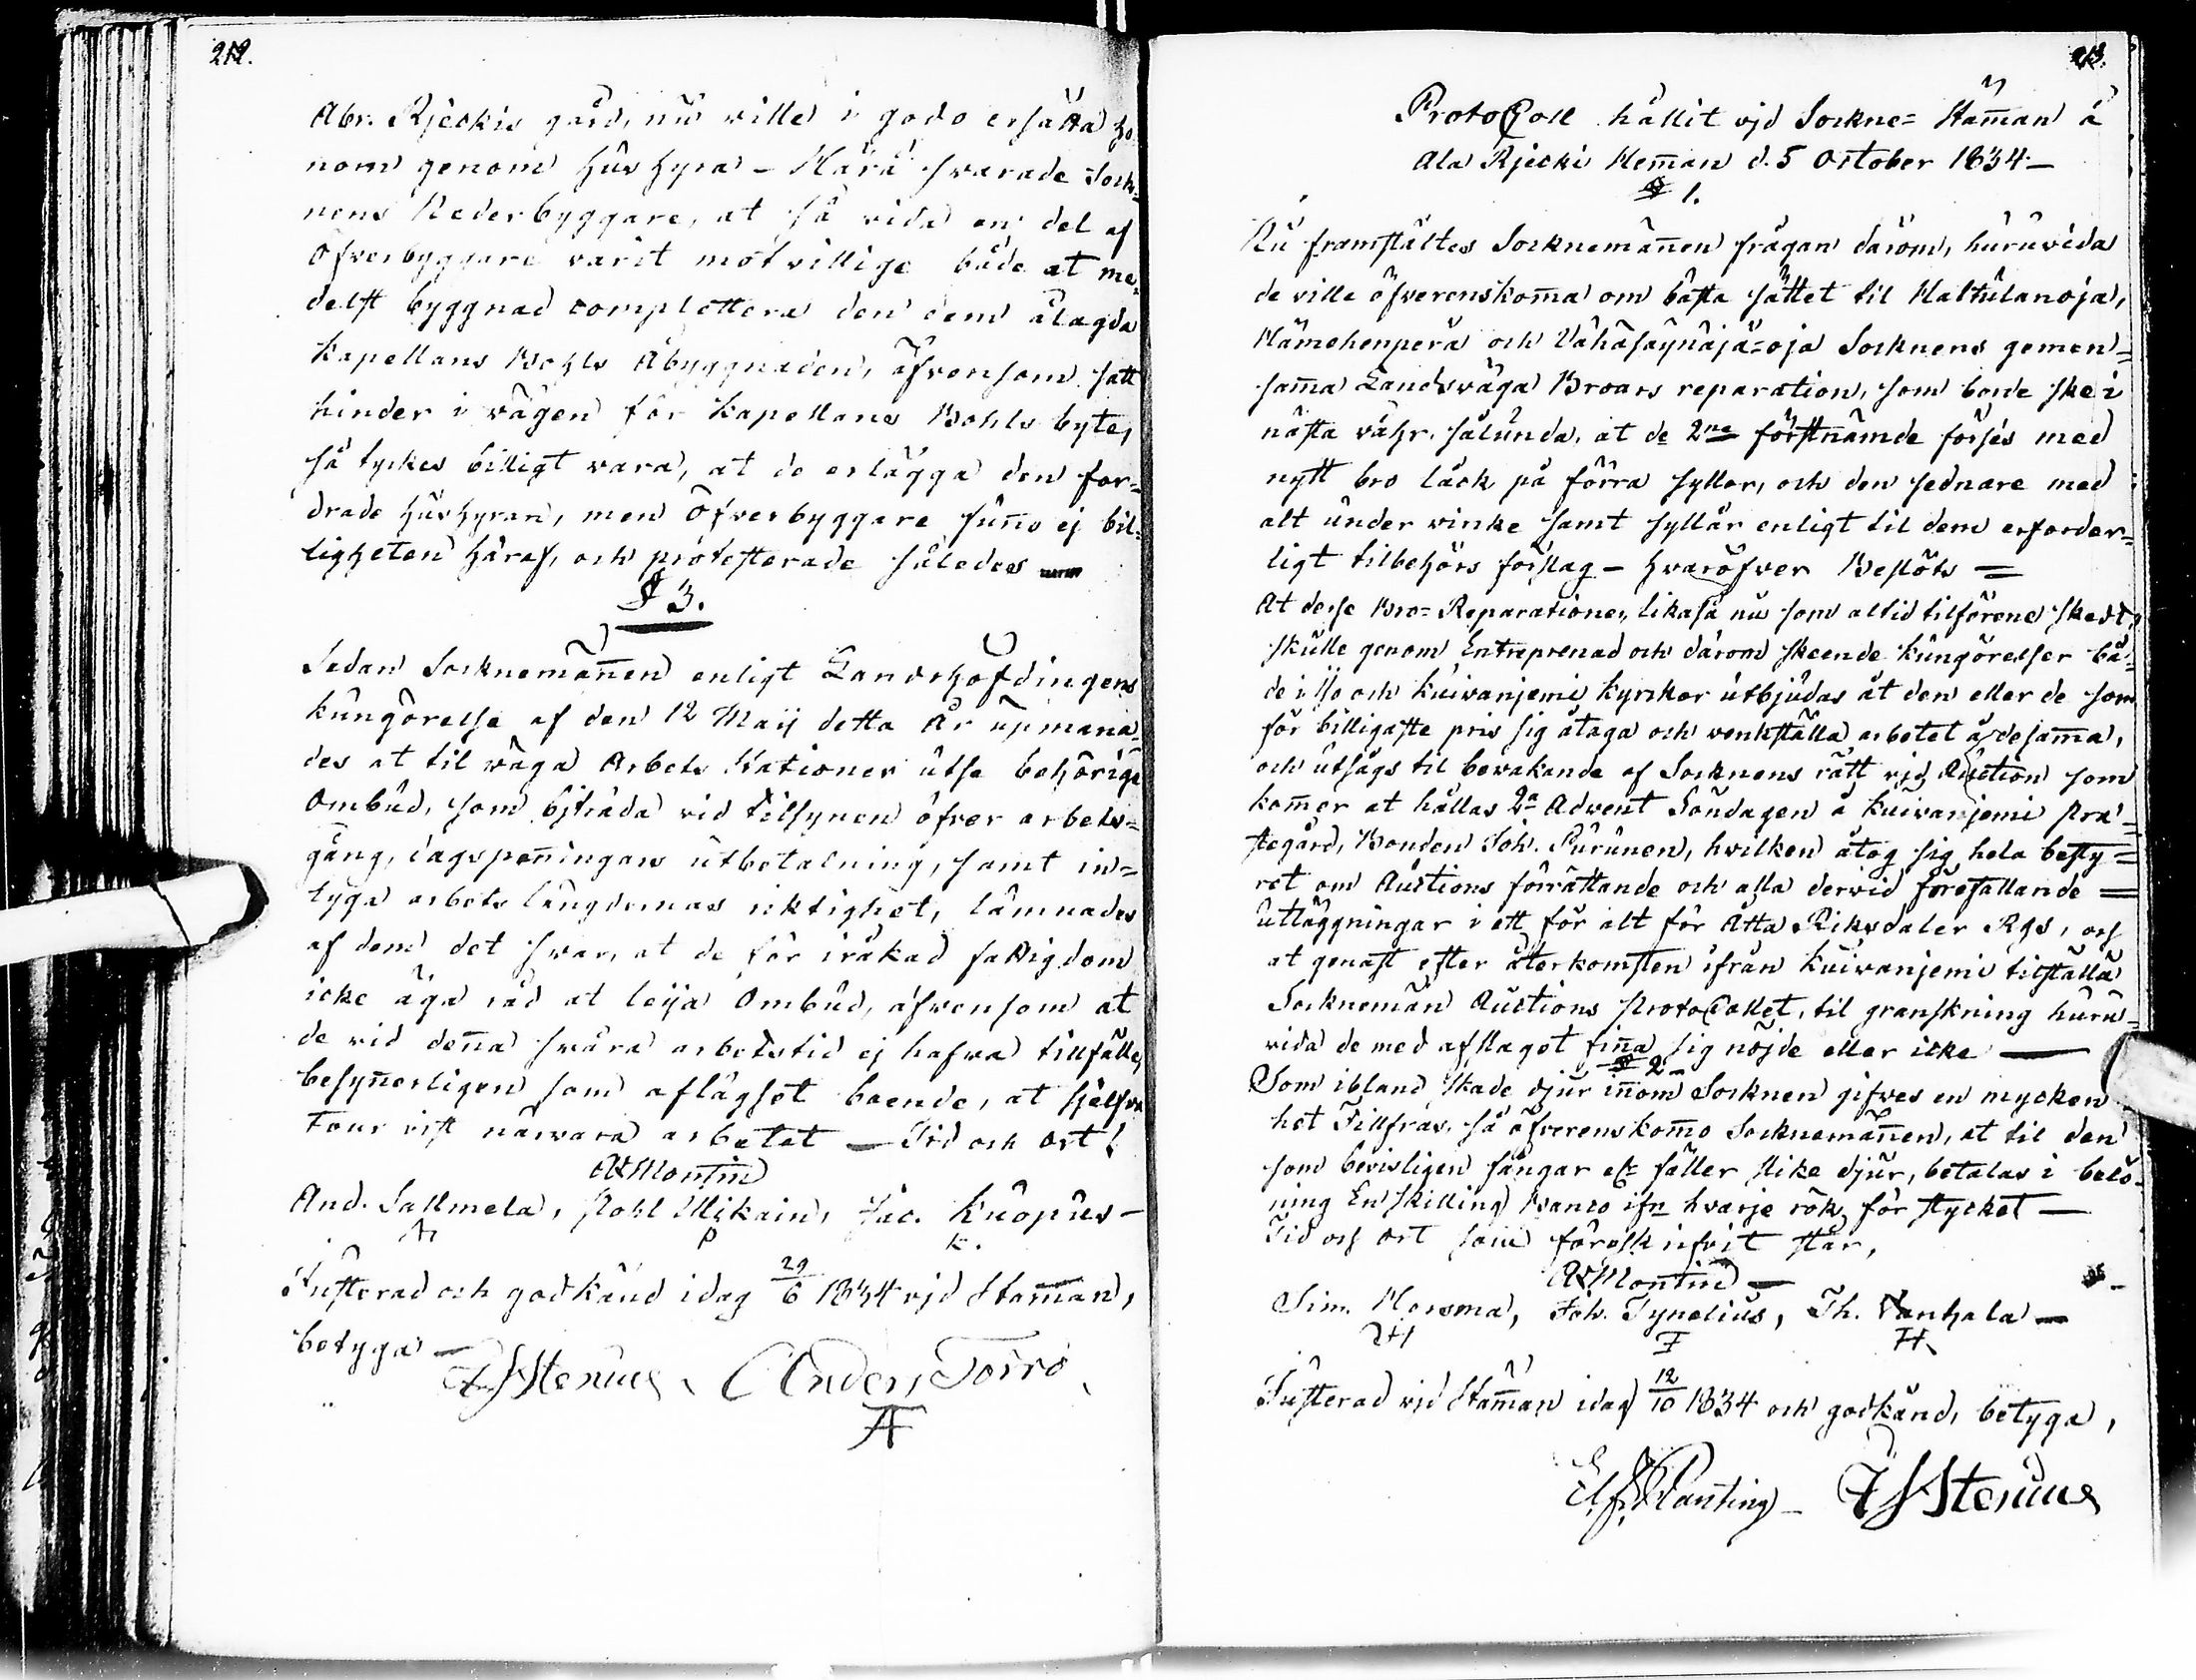 212.
Abr. Kjeckis gård, nu ville i godo ersätta ho-
nom genom hus hyra – Härå svarade Sock-
nens Nederbyggare, at så vida en del af
Öfverbyggare varit motvillige både at me-
delst byggnad complettera den dem ålagda
Kapellans Bohls Åbyggnaden, äfvensom satt
hinder i vägen för Kapellans Bohls byte,
så tyckes billigt vara, at de erlägga den for-
drade hushyran, men Öfverbyggare funno ej bil-
ligheten häraf, och protesterade således —
§ 3.
Sedan Socknemännen enligt Landshöfdingens
Kungörelse af den 12 Maij detta År upmana-
des at til wäga Arbets Stationer utse behörige
Ombud, som bjträda vid tillsynen öfver arbets-
gång, dagspenningars utbetalning, samt in-
tyga arbets längdernas riktighet, lämnades
af dem det svar, at de för iråkad fattigdom
icke äga råd at leija Ombud, äfvensom at
de vid denna svåra arbetstid ej hafva tillfälle,
besynnerligen som aflägset boende, at sjelfva
tour vist närvara arbetet — Tid och Ort!
And. Sallmela, Pohl Mikain, Jac. Kuopus –
P K.
Justerad och godkänd idag 29/6 1834 vjd Stämman,
betyga —
J Stenius, Anders Torro
213.
ProtoColl hållit vjd Sockne= Stämman å
Ala Kjecki Hemman d. 5 October 1834 –
§ 1.
Nu framstältes Socknemännen frågan därom, huruvida
de ville öfverenskomma om bästa sättet til Haltulanoja,
Hämehenperä och Vähäsaynäjä=oja Socknens gemen=
samma Landsväga Broars reparation, som borde ske i
nästa vahr. sålunda, at de 2ne förstnämde förses med
nytt bro läck på förra syllor, och den sednare med
alt under vinke samt syllar enligt til dem erforder=
ligt tilbehörs förslag – hvaröfver Beslöts =
At desse Bro= Reparationer, likaså nu som altid tilförene skedt,
skulle genom Entreprenad och därom skeende kungörelser bå-
de i Ijo och Kuivanjemi kyrkor utbjudas åt den eller de som
för billigaste pris sig åtaga och verkställa arbetet å desamma,
och utsågs til bevakande af Socknens rätt vid Auction som
kommer at hållas 2a Advent Söndagen å Kuivanjemi Prä-
stegård, Bonden Joh. Purunen, hvilken åtog sig hela besty=
ret om Auctions förrättande och alla dervid förefallande =
Utläggningar i ett för alt för Åtta Riksdaler Rgs, och
at genast efter återkomsten ifrån Kuivanjemi tilställa
Socknemän Auctions ProtoCollet, til granskning huru-
vida de med afslaget finna sig nöjde eller icke —
§ 2
Som ibland skade djur innom Socknen gifves en mycken-
het Fillfras, så öfverenskommo Socknemännen, at til den
som bevisligen fångar elr fäller slike djur, betalas i belö-
ning En skilling Banco ifrn hvarje rök för stycket —
Tid och Ort som föreskrifvit står,
Sim. Horsma, Joh. Tynelius, Th. Vanhala —
Justerad vid Stämman idag 12/10 1834 och godkänd, betyga,
Planting – J Stenius